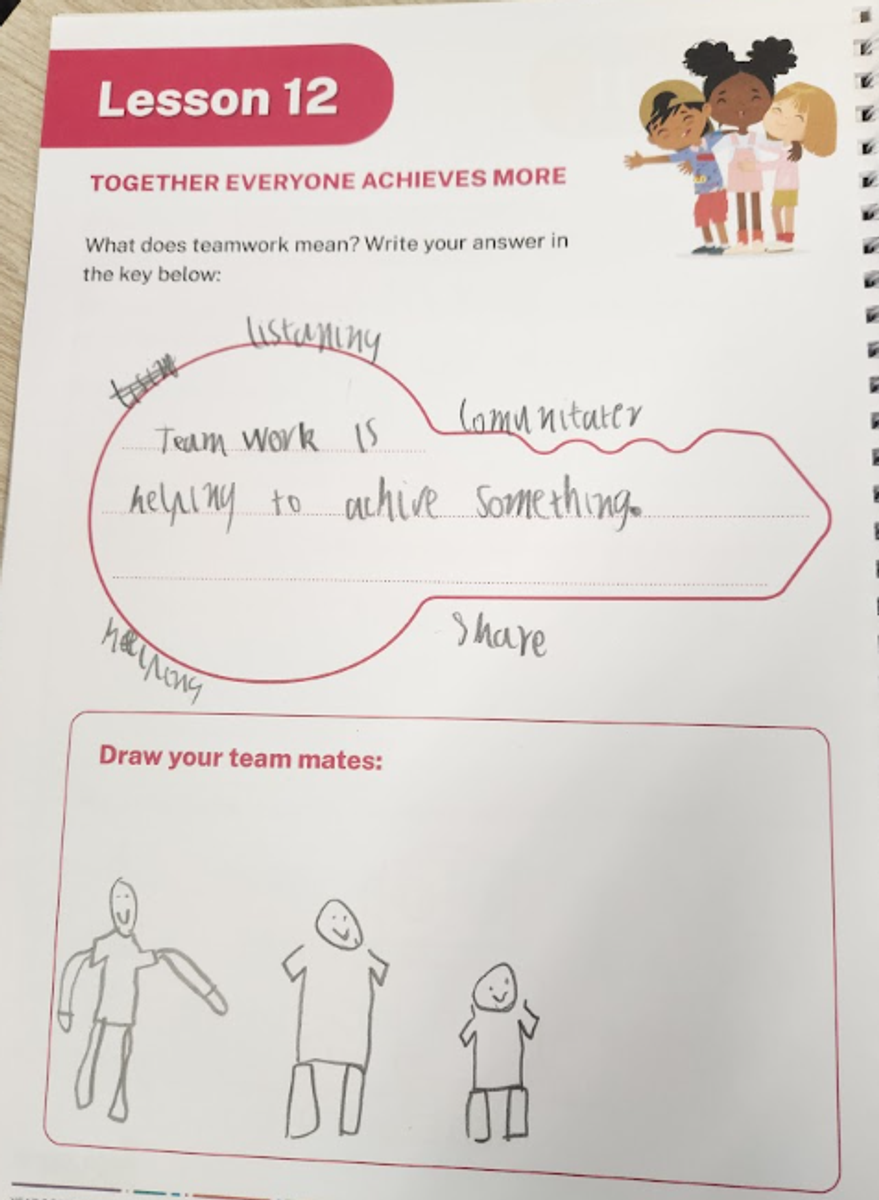 Lesson 12
TOGETHER EVERYONE ACHIEVES MORE
What does teamwork mean? Write your answer in
the key below:
listaning
Comunitater
Team work is
helping to achive something.
share
helping
Draw your team mates: